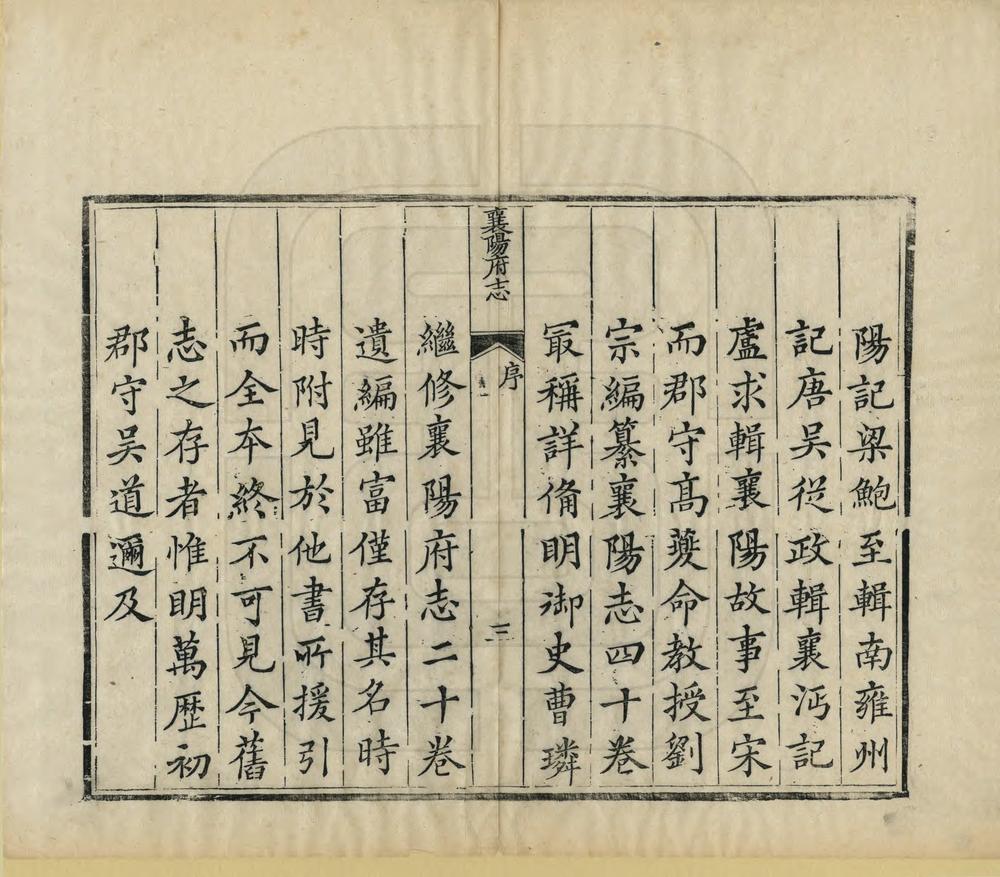 陽記梁鮑至輯南雍州
記唐吴從政輯襄沔記
盧求輯襄陽故事至宋
而郡守髙夔命教授劉
宗編纂襄陽志四十卷
冣稱詳俻明御史曹璘
襄陽府志
序
三
繼修襄陽府志二十卷
遺編雖富僅存其名時
時附見於他書所援引
而全本終不可見今舊
志之存者惟明萬歴初
郡守吴道邇及